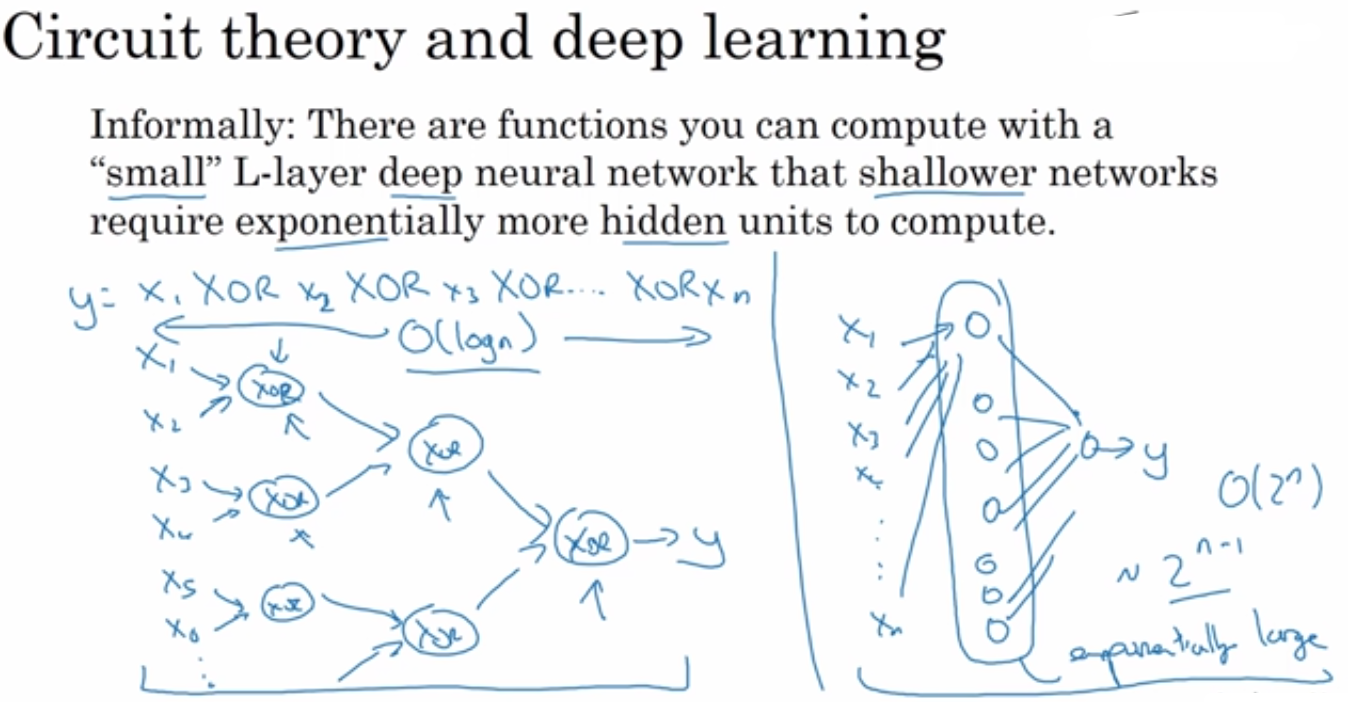 Circuit theory and deep learning
Informally: There are functions you can compute with a
“small” L-layer deep neural network that shallower networks
require exponentially more hidden units to compute.
y = x1 XOR x2 XOR x3 XOR.... XOR xn
O(log n)
x1
XOR
x2
XOR
x3
XOR
x4
XOR → y
x5
XOR
x6
XOR
x1
x2
x3
x4
xn
y
O(2^n)
~ 2^n-1
exponentially large